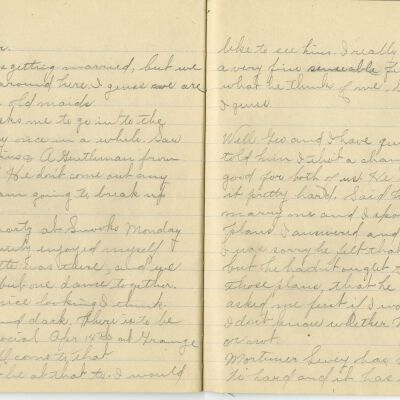 r.
s getting married, but we
around here. I guess we are
old maids.
ks me to go in to the
y once in a while. Saw
A Gentleman from
He don't come out any
am going to break up
party at Snooks Monday
enjoyed myself
was there, and we
but one dance together.
nice looking I think
and dark. There is to be
social Apr 14th at Grange
to that
be at that to. I would
like to see him. I really
a very fine senseable
what he thinks of me.
I guess.
Well Geo and I have
told him I shot a
good for both of us. He
it pretty hard. Said
marry me and I
plans. I answered and
I was sorry he felt that
but he hadn't ought
those plans, that he
asked me first if I
I don't know whether
or not.
Mortimer has
to hard and it has